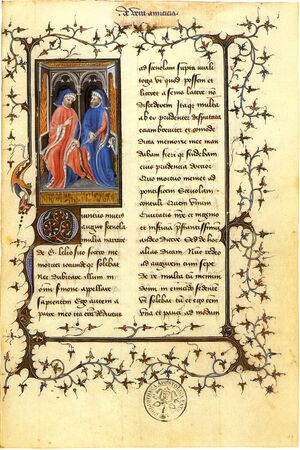 de vera amicicia
Quintus mutius
augur scevola
multa narrare
de C. lelio suo socero me
moriter iocunde que solebat
nec dubitare illum in om
ni sermone appellare
sapientem Ego autem a
patre ita eram deductus
ad scevolam supta virili
toga ut quod possem et
liceret a senis latere nu
discederem Itaque multa ab
eo prudenter disputata
memorie
dabam fieri que studebam
eius prudencia doctior
Quo mortuo me ad
pontificem scevolam
contuli Quem unum
civitatis et ingenio
et iusticia prestantissimum
audeo dicere Sed de hoc
alias Nunc redeo
ad augurem cum sepe
de re multa tum memini
domi in emiciclo sedente
ut solebat cum et ego essem
una et pauci ad modum